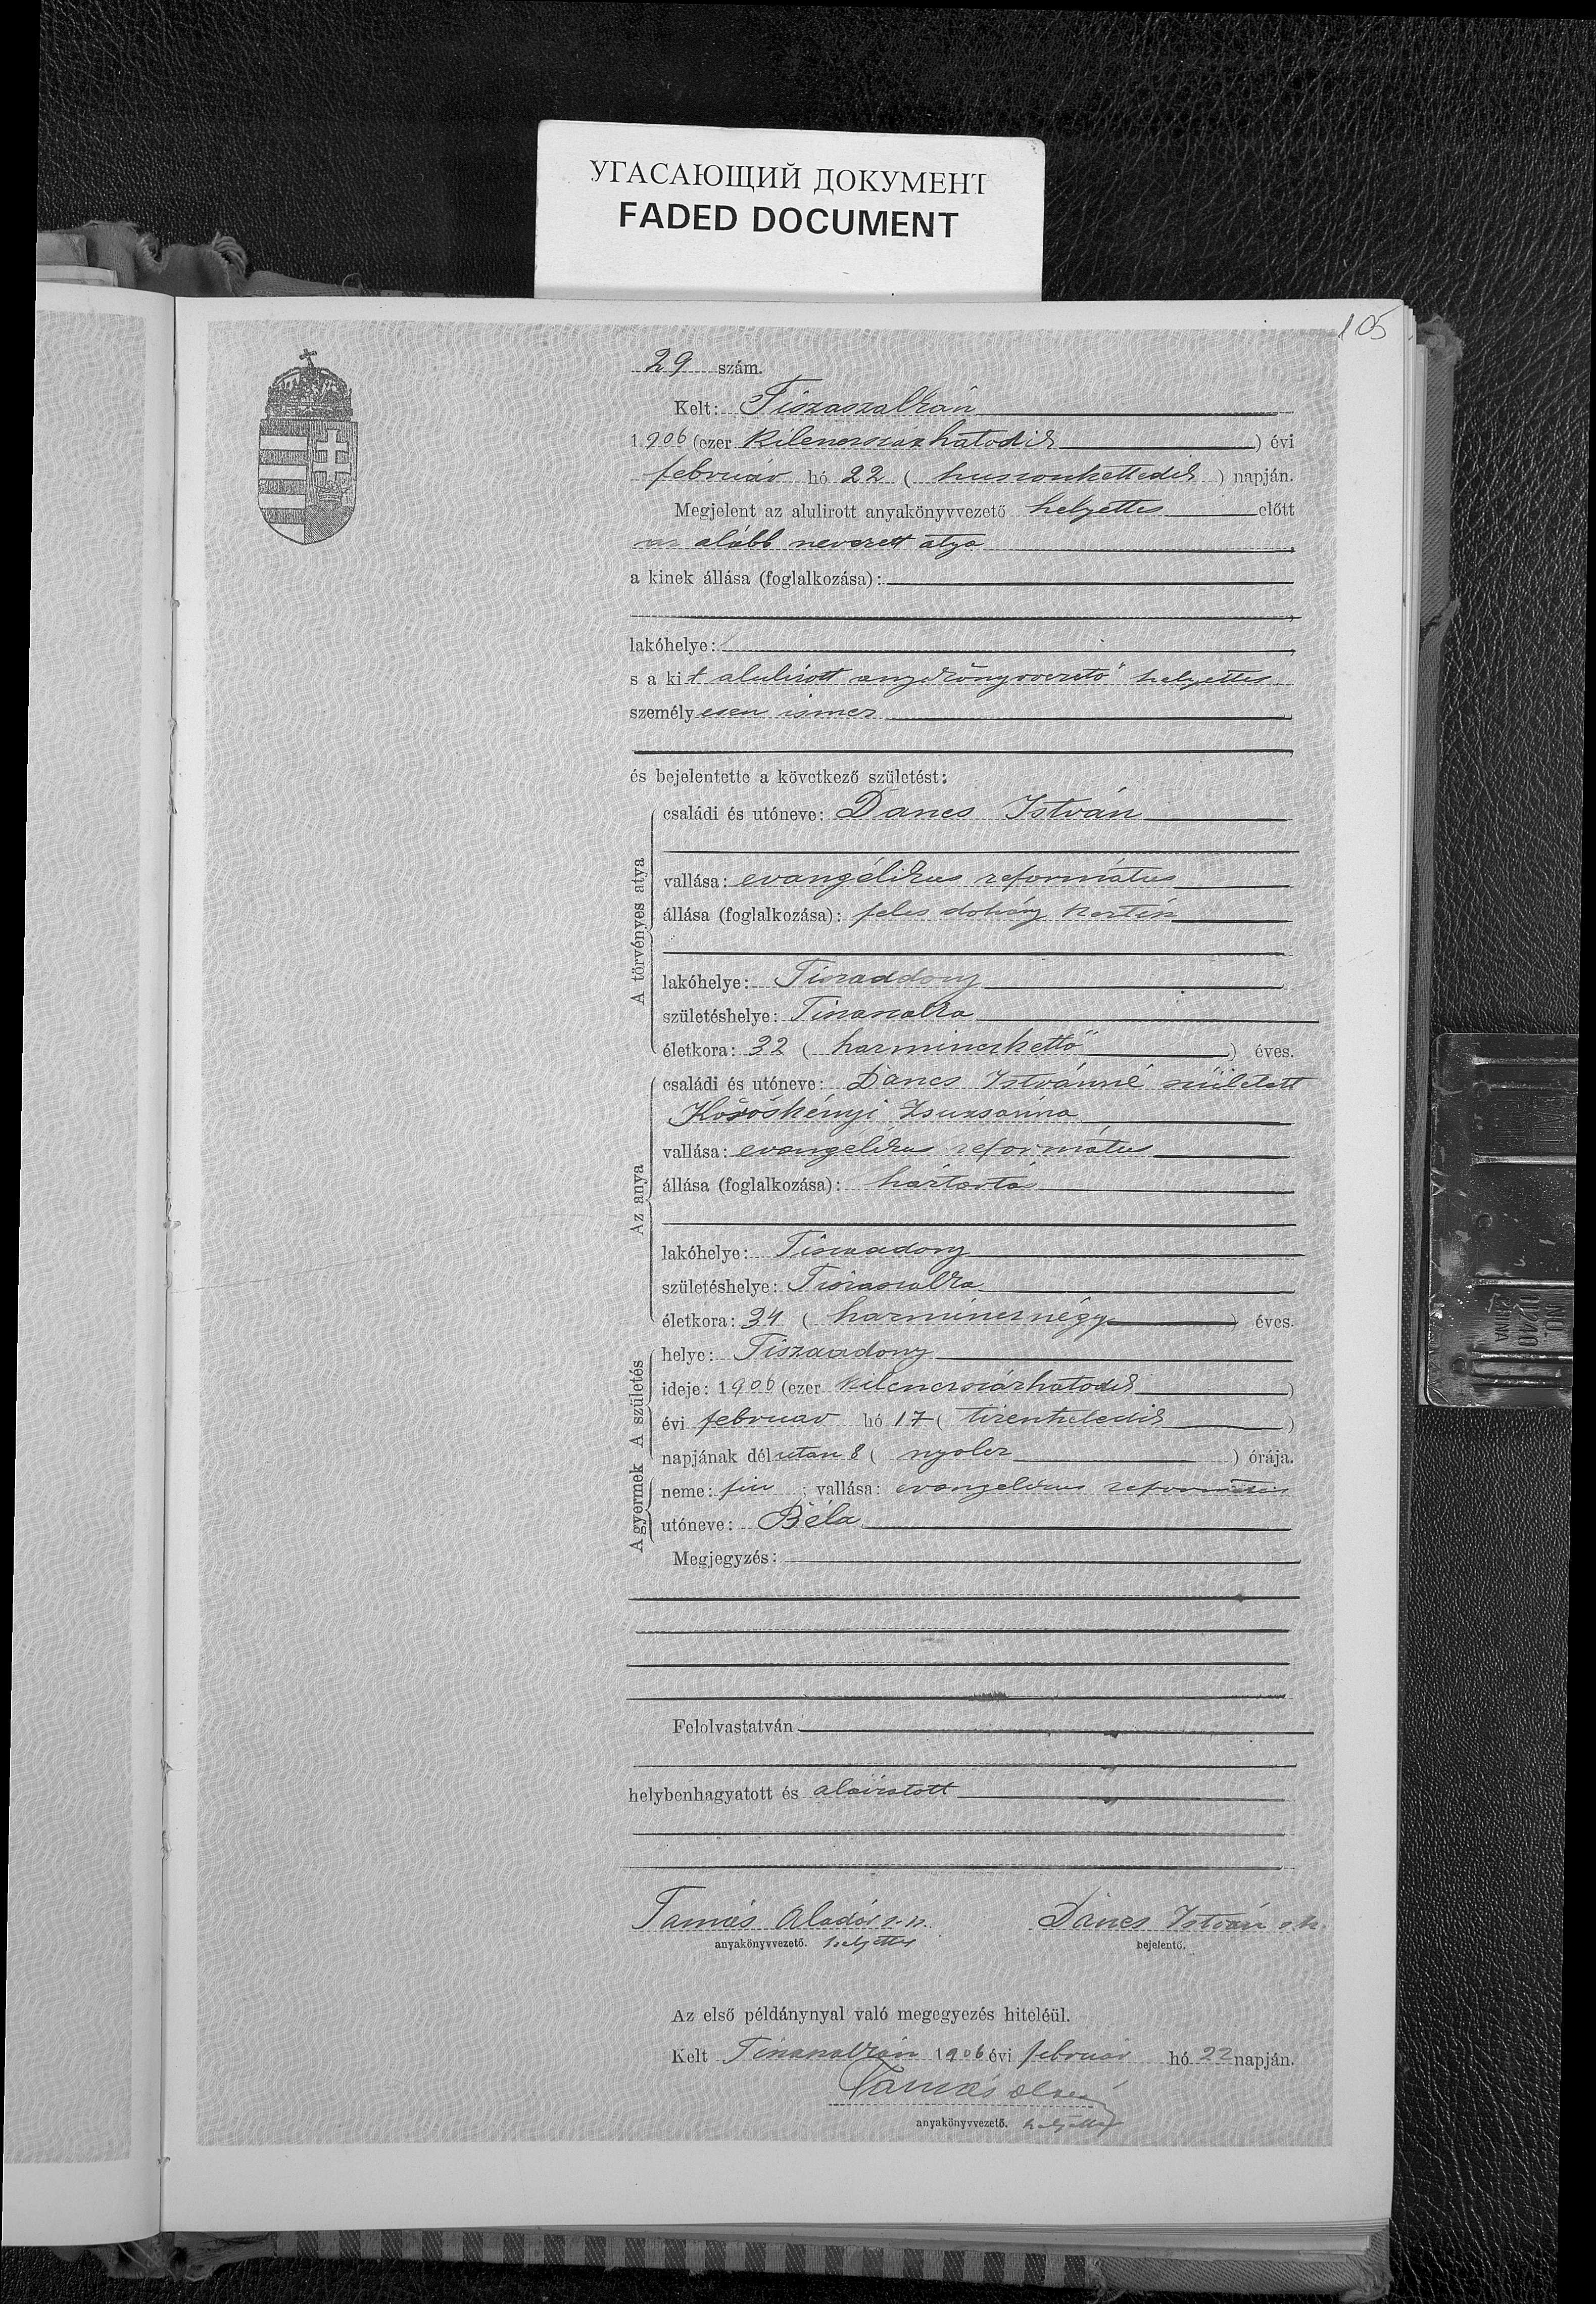 УГАСАЮЩИЙ ДОКУМЕНТ
FADED DOCUMENT
105
29 szám.
Kelt: Tiszaszalkán
1906 (ezer kilencszázhatodik) évi
február hó 22 (huszonkettedik) napján.
Megjelent az alulirott anyakönyvvezető helyettes előtt
az alább nevezett atya
a kinek állása (foglalkozása):
lakóhelye:
s a kit alulirott anyakönyvvezető helyettes
személyesen ismer
és bejelentette a következő születést:
A törvényes atya
családi és utóneve: Dancs István
vallása: evangélikus református
állása (foglalkozása): feles dohány kertész
lakóhelye: Tiszaadony
születéshelye: Tiszaszalka
életkora: 32 (harminczkettő) éves.
Az anya
családi és utóneve: Dancs Istvánné született
Köröskényi Zsuzsánna
vallása: evangelikus református
állása (foglalkozása): háztartás
lakóhelye: Tiszaadony
születéshelye: Tiszaszalka
életkora: 34 (harmincznégy) éves.
A születés
helye: Tiszaadony
ideje: 1906 (ezer kilenczszázhatodik)
évi február hó 17 (tizenhetedik)
napjának délután 8 (nyolcz) órája.
A gyermek
neme: fiu; vallása: evangelikus református
utóneve: Béla
Megjegyzés:
Felolvastatván
helybenhagyatott és aláiratott
Tamás Aladár s. k. Dancs István s. k.
anyakönyvvezető. helyettes bejelentő.
Az első példánynyal való megegyezés hiteléül.
Kelt Tiszaszalkán 1906 évi február hó 22 napján.
Tamás Aladár
anyakönyvvezető. helyettes
NO.
11240